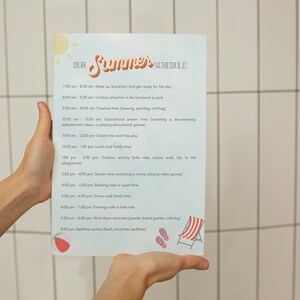 OUR Summer SCHEDULE
7:00 am - 8:00 am: Wake up, breakfast, and get ready for the day
8:00 am - 9:00 am: Outdoor playtime in the backyard or park
9:00 am - 10:00 am: Creative time (drawing, painting, crafting)
10:00 am - 11:00 am: Educational screen time (watching a documentary,
educational videos, or playing educational games)
11:00 am - 12:00 pm: Snack time and free play
12:00 pm - 1:00 pm: Lunch and family time
1:00 pm - 3:00 pm: Outdoor activity (bike ride, nature walk, trip to the
playground)
3:00 pm - 4:00 pm: Screen time (watching a movie, playing video games)
4:00 pm - 5:00 pm: Reading time or quiet time
5:00 pm - 6:00 pm: Dinner and family time
6:00 pm - 7:00 pm: Evening walk or bike ride
7:00 pm - 8:00 pm: Wind down activities (puzzle, board games, coloring)
8:00 pm: Bedtime routine (bath, storytime, bedtime)